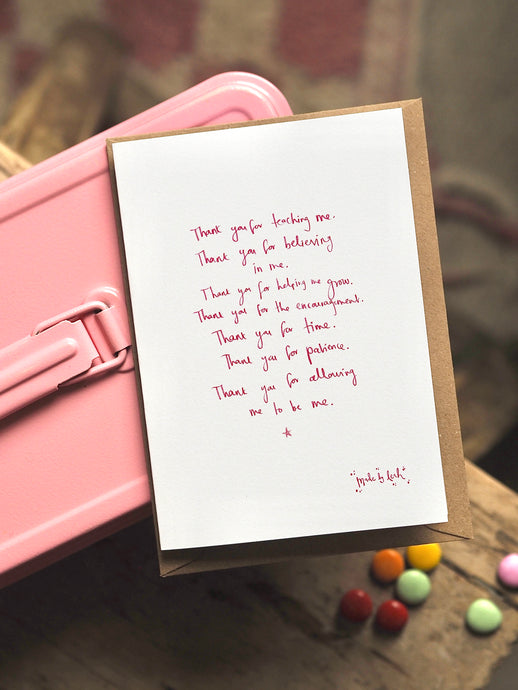 Thank you for teaching me.
Thank you for believing
in me.
Thank you for helping me grow.
Thank you for the encouragment.
Thank you for time.
Thank you for patience.
Thank you for allowing
me to be me.
made by leah